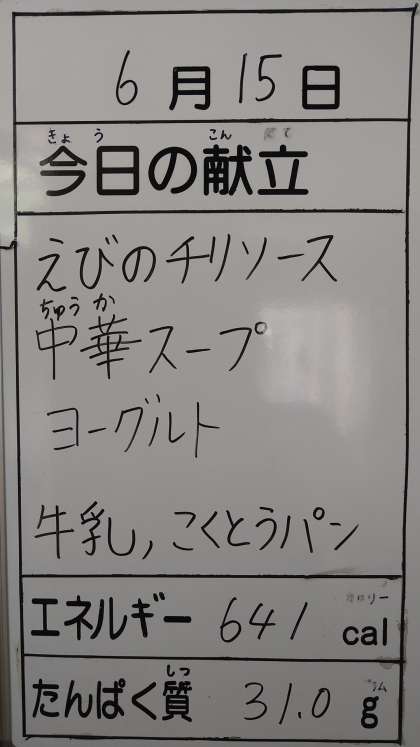 6月15日
きょう こん だて
今日の献立
えびのチリソース
ちゅう か
中華スープ
ヨーグルト
牛乳,こくとうパン
カロリー
エネルギー 641 cal
しつ
たんぱく質 31.0 g